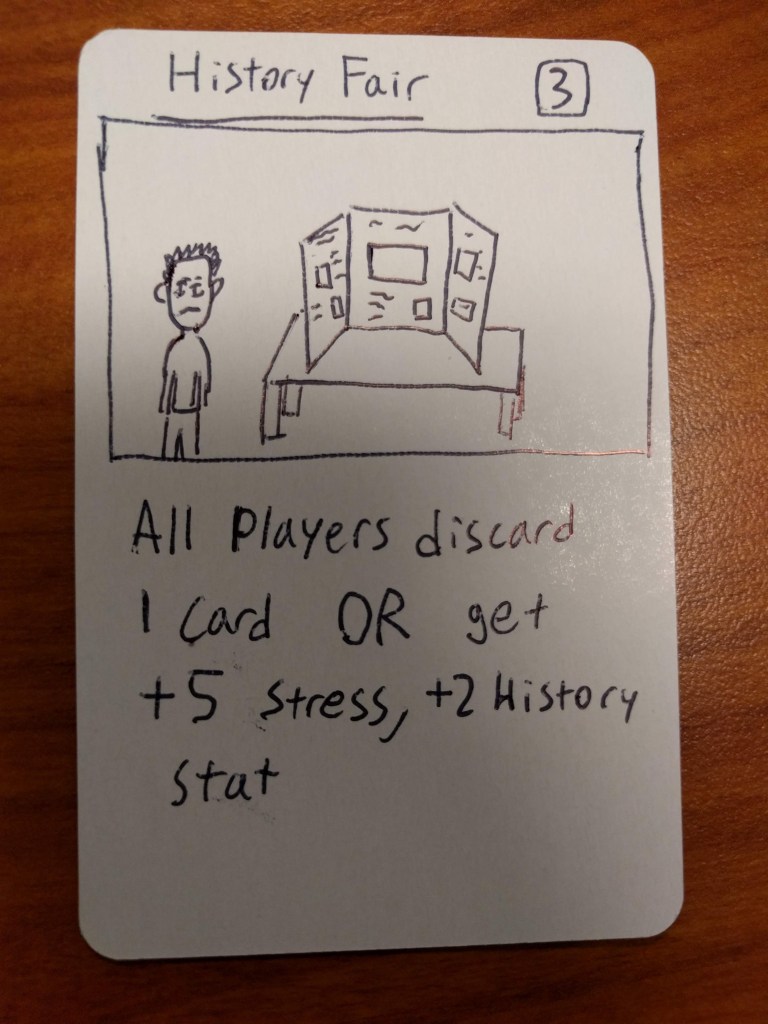 History Fair 3
All Players discard
1 Card OR get
+5 stress, +2 History
stat